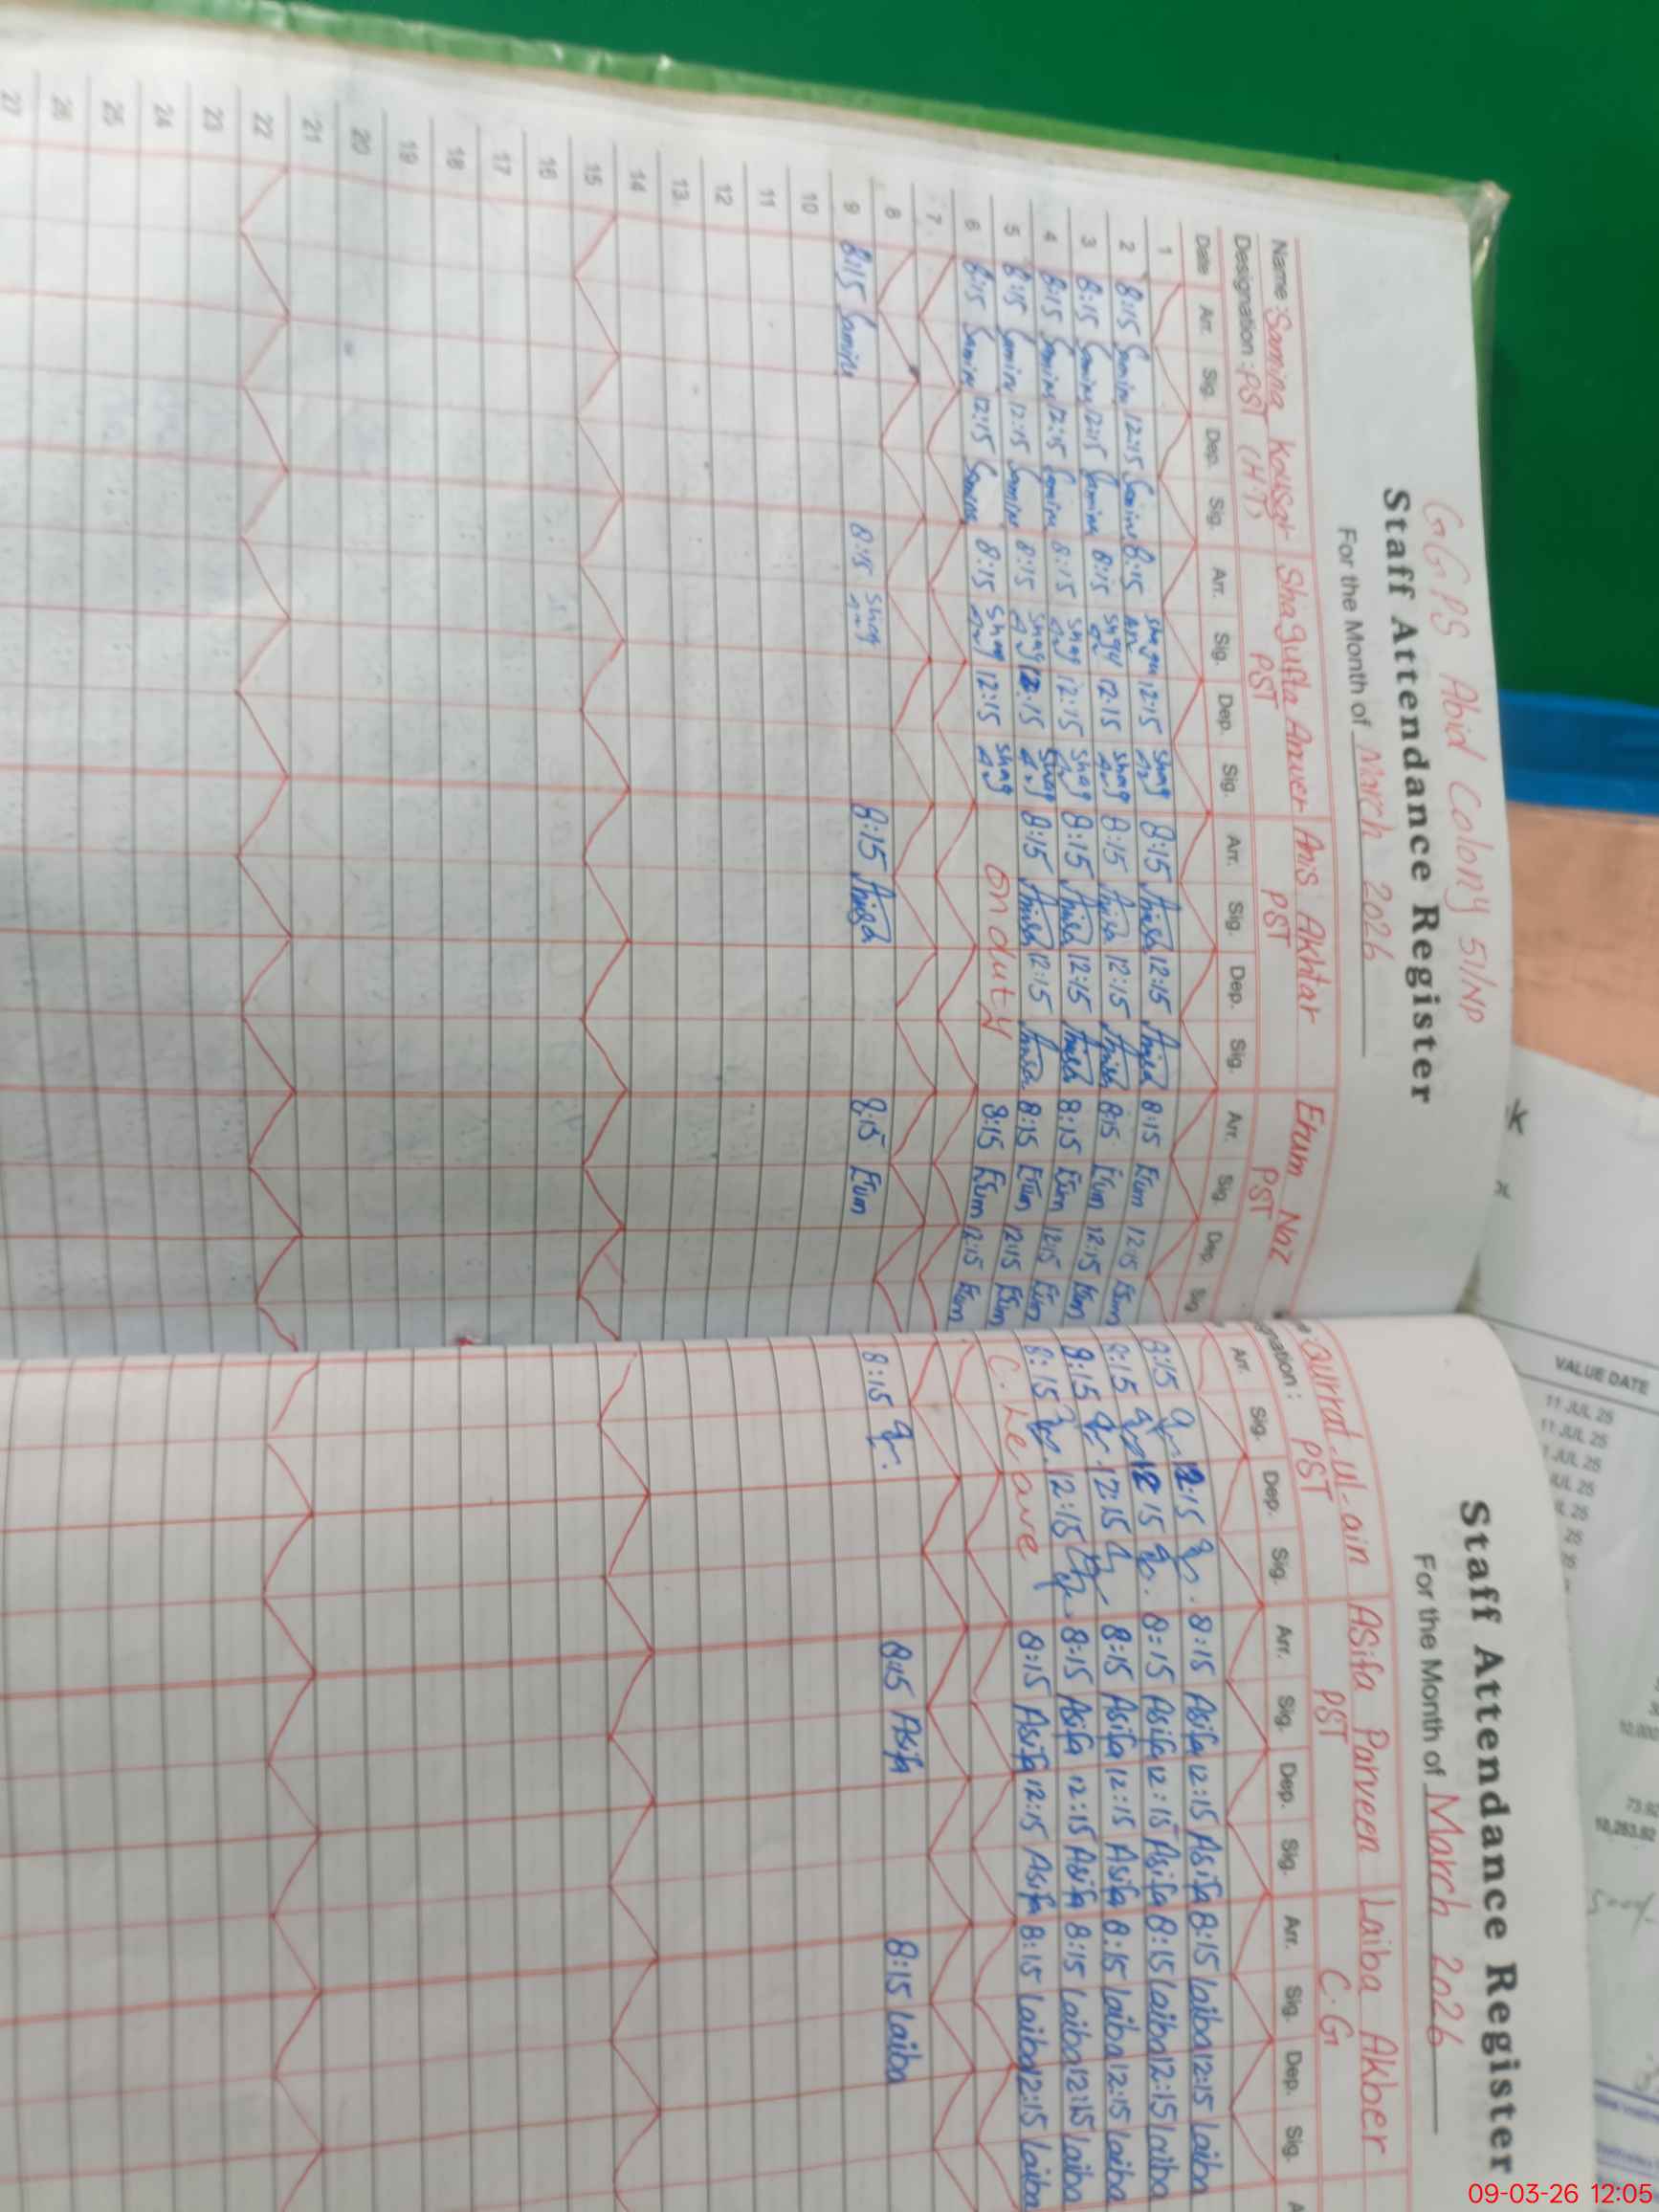 GGPS Abid Colony 51/NP
Staff Attendance Register
For the Month of March 2026
Name : Samina Kousar Shagufta Anwer Anis Akhtar Erum Naz
Designation : PST (H.T) PST PST PST
Date Arr. Sig. Dep. Sig. Arr. Sig. Dep. Sig. Arr. Sig. Dep. Sig. Arr. Sig. Dep. Sig
1
2 8:15 Samina 12:15 Samina 8:15 Shagu 12:15 Shag 8:15 Anisa 12:15 Anisa 8:15 Erum 12:15 Erum
3 8:15 Samina 12:15 Samina 8:15 Shagu 12:15 Shag 8:15 Anisa 12:15 Anisa 8:15 Erum 12:15 Erum
4 8:15 Samina 12:15 Samina 8:15 Shag 12:15 Shag 8:15 Anisa 12:15 Anisa 8:15 Erum 12:15 Erum
5 8:15 Samina 12:15 Samina 8:15 Shag 12:15 Shag 8:15 Anisa 12:15 Anisa 8:15 Erum 12:15 Erum
6 8:15 Samina 12:15 Samina 8:15 Shag 12:15 Shag On duty 8:15 Erum 12:15 Erum
7
8
9 8:15 Samina 8:15 Shag 8:15 Anisa 8:15 Erum
10
11
12
13
14
15
16
17
18
19
20
21
22
23
24
25
26
27
Staff Attendance Register
For the Month of March 2026
Qurrat-ul-ain Asifa Parveen Laiba Akber
gnation : PST PST C.G
Arr. Sig. Dep. Sig. Arr. Sig. Dep. Sig. Arr. Sig. Dep. Sig. A
8:15 12:15 8:15 Asifa 12:15 Asifa 8:15 laiba 12:15 laiba
8:15 12:15 8:15 Asifa 12:15 Asifa 8:15 laiba 12:15 laiba
8:15 12:15 8:15 Asifa 12:15 Asifa 8:15 laiba 12:15 laiba
8:15 12:15 8:15 Asifa 12:15 Asifa 8:15 laiba 12:15 laiba
C. Leave 8:15 Asifa 12:15 Asifa 8:15 laiba 12:15 laiba
8:15 Qr. 8:15 Asifa 8:15 laiba
VALUE DATE
11 JUL 25
11 JUL 25
JUL 25
JUL 25
09-03-26 12:05